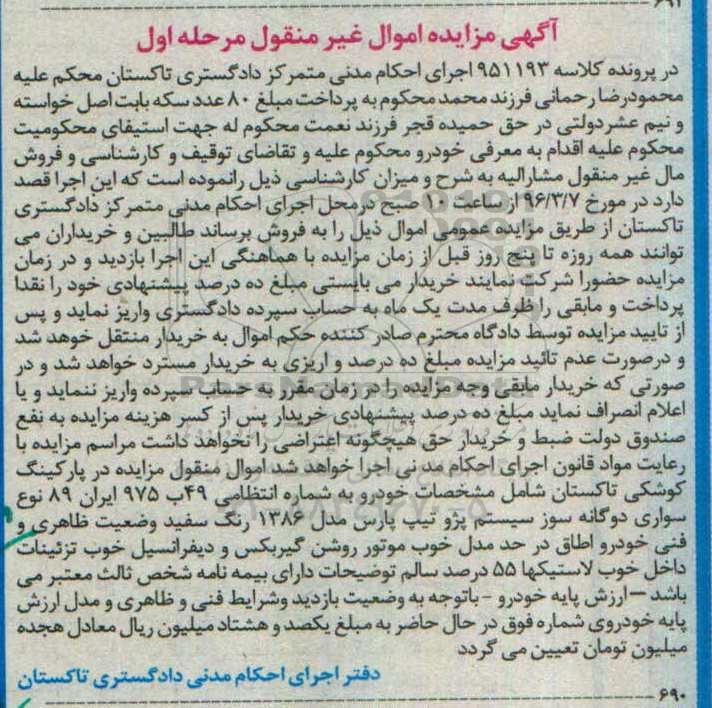 ۶۹۲
آگهی مزایده اموال غیر منقول مرحله اول
در پرونده کلاسه ۹۵۱۱۹۳ اجرای احکام مدنی متمرکز دادگستری تاکستان محکم علیه
محمودرضا رحمانی فرزند محمد محکوم به پرداخت مبلغ ۸۰ عدد سکه بابت اصل خواسته
و نیم عشردولتی در حق حمیده قجر فرزند نعمت محکوم له جهت استیفای محکومیت
محکوم علیه اقدام به معرفی خودرو محکوم علیه و تقاضای توقیف و کارشناسی و فروش
مال غیر منقول مشارالیه به شرح و میزان کارشناسی ذیل رانموده است که این اجرا قصد
دارد در مورخ ۹۶/۳/۷ از ساعت ۱۰ صبح درمحل اجرای احکام مدنی متمرکز دادگستری
تاکستان از طریق مزایده عمومی اموال ذیل را به فروش برساند طالبین و خریداران می
توانند همه روزه تا پنج روز قبل از زمان مزایده با هماهنگی این اجرا بازدید و در زمان
مزایده حضورا شرکت نمایند خریدار می بایستی مبلغ ده درصد پیشنهادی خود را نقدا
پرداخت و مابقی را ظرف مدت یک ماه به حساب سپرده دادگستری واریز نماید و پس
از تایید مزایده توسط دادگاه محترم صادر کننده حکم اموال به خریدار منتقل خوهد شد
و درصورت عدم تائید مزایده مبلغ ده درصد و اریزی به خریدار مسترد خواهد شد و در
صورتی که خریدار مابقی وجه مزایده را در زمان مقرر به حساب سپرده واریز ننماید و یا
اعلام انصراف نماید مبلغ ده درصد پیشنهادی خریدار پس از کسر هزینه مزایده به نفع
صندوق دولت ضبط و خریدار حق هیچگونه اعتراضی را نخواهد داشت مراسم مزایده با
رعایت مواد قانون اجرای احکام مد نی اجرا خواهد شد اموال منقول مزایده در پارکینگ
کوشکی تاکستان شامل مشخصات خودرو به شماره انتظامی ۴۹ب ۹۷۵ ایران ۸۹ نوع
سواری دوگانه سوز سیستم پژو تیپ پارس مدل ۱۳۸۶ رنگ سفید وضعیت ظاهری و
فنی خودرو اطاق در حد مدل خوب موتور روشن گیربکس و دیفرانسیل خوب تزئینات
داخل خوب لاستیکها ۵۵ درصد سالم توضیحات دارای بیمه نامه شخص ثالث معتبر می
باشد – ارزش پایه خودرو - باتوجه به وضعیت بازدید وشرایط فنی و ظاهری و مدل ارزش
پایه خودروی شماره فوق در حال حاضر به مبلغ یکصد و هشتاد میلیون ریال معادل هجده
میلیون تومان تعیین می گردد
دفتر اجرای احکام مدنی دادگستری تاکستان
۶۹۰